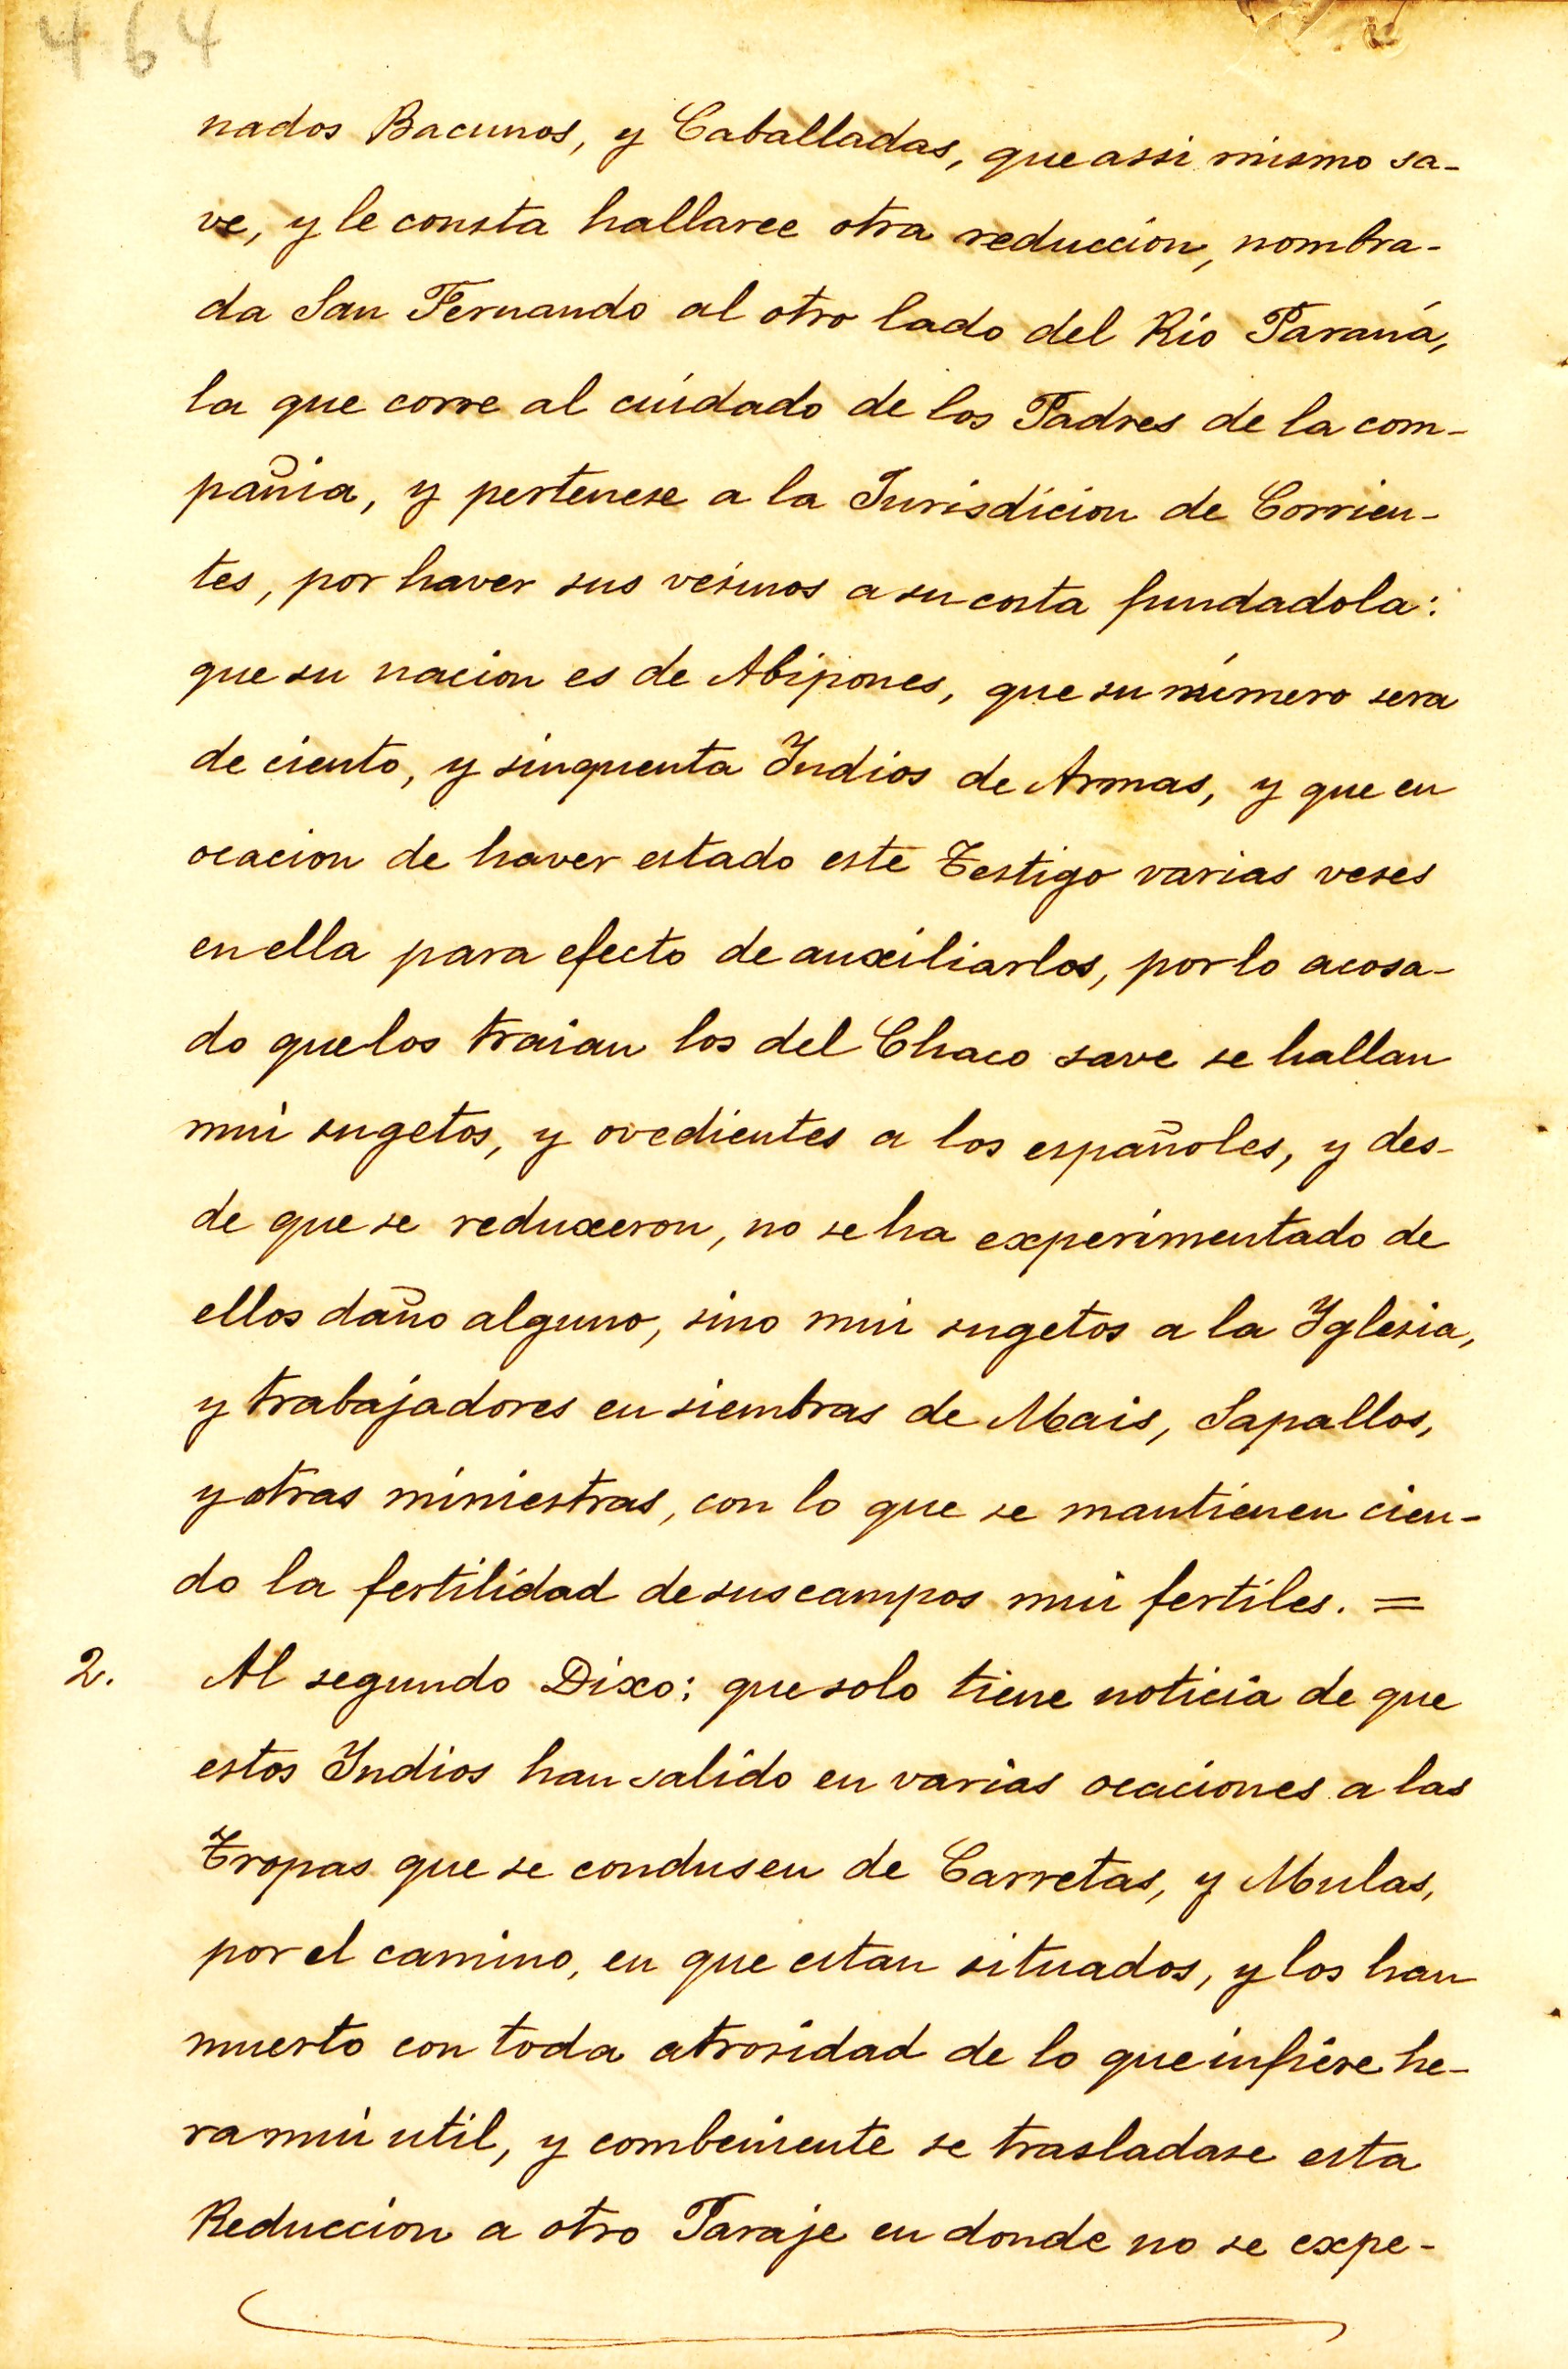 464
nados Bacunos, y Caballadas, que assi mismo sa-
ve, y le consta hallarce otra reduccion, nombra-
da San Fernando al otro lado del Rio Paraná,
la que corre al cuidado de los Padres de la com-
pañia, y pertenese a la Jurisdicion de Corrien-
tes, por haver sus vesinos a su costa fundadola:
que su nacion es de Abipones, que su número sera
de ciento, y sinquenta Indios de Armas, y que en
ocacion de haver estado este Testigo varias veses
en ella para efecto de auxiliarlos, por lo acosa-
do que los traian los del Chaco save se hallan
mui sugetos, y ovedientes a los españoles, y des-
de que se reduxeron, no se ha experimentado de
ellos daño alguno, sino mui sugetos a la Yglesia,
y trabajadores en siembras de Mais, Sapallos,
y otras miniestras, con lo que se mantienen cien-
do la fertilidad de sus campos mui fertiles. =
2. Al segundo Dixo: que solo tiene noticia de que
estos Yndios han salido en varias ocaciones a las
Tropas que se condusen de Carretas, y Mulas,
por el camino, en que estan situados, y los han
muerto con toda atrosidad de lo que infiere he-
ra mui util, y combeniente se trasladase esta
Reduccion a otro Paraje en donde no se expe-